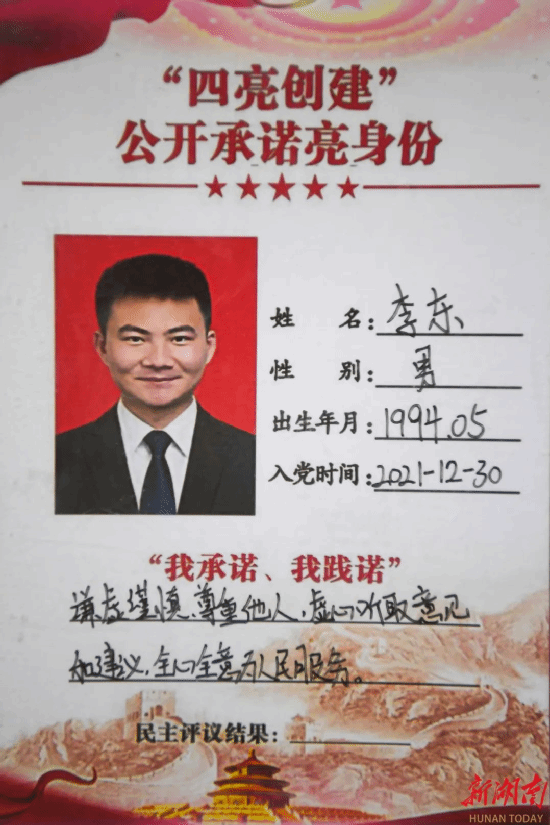 “四亮创建”
公开承诺亮身份
姓 名：李东
性 别：男
出生年月：1994.05
入党时间：2021-12-30
“我承诺、我践诺”
谦虚谨慎、尊重他人，虚心听取意见
和建议，全心全意为人民服务。
民主评议结果：
新湖南
HUNAN TODAY